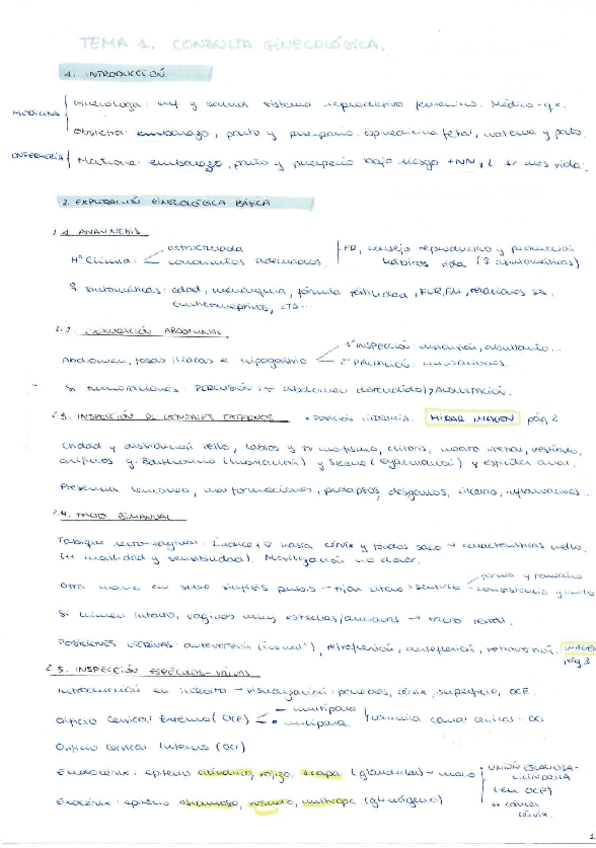 TEMA 1. CONSULTA GINECOLÓGICA.
1. INTRODUCCIÓN
MEDICINA
Ginecología: enf y salud sistema reproductivo femenino. Médico-qx.
Obstetra: embarazo, parto y puerperio. fetal, materna y
ENFERMERÍA
Matrona: embarazo, parto y puerperio bajo riesgo + NN, 1 er mes vida.
2. EXPLORACIÓN GINECOLÓGICA BÁSICA
2.1 ANAMNESIS
Hª Clínica: estructurada
conocimientos adecuados.
FR, consejo reproductivo y promoción
hábitos vida (♀ asintomáticas)
♀ sintomáticas: edad, menarquia, fórmula fertilidad, FUR, FM, relaciones ss.
anticonceptivos, ETS...
2.2. EXPLORACIÓN ABDOMINAL
Abdomen, fosas ilíacas e hipogastrio
1º INSPECCIÓN: distensión, abultamto...
2º PALPACIÓN: tumoraciones.
Si tumoraciones: PERCUSIÓN abdomen distendido AUSCULTACIÓN.
2.3. INSPECCIÓN DE GENITALES EXTERNOS
POSICIÓN LITOTOMÍA. MIRAR IMAGEN pág 2
Cantidad y distribución vello, labios y trofismo, clítoris, meato uretral, vestíbulo,
orificios g. Bartholino (lubricación) y Skene (eyaculación) y esfínter anal.
Presencia lesiones, malformaciones, prolapsos, desgarros, úlceras, inflamaciones...
2.4. TACTO BIMANUAL
Tabique recto-vaginal. Índice + hasta cérvix y fondos saco → características cuello.
(++ movilidad y sensibilidad). Movilización no dolor.
Otra mano en sobre sínfisis pubis → fijar útero → sentirlo
forma y tamaño
consistencia y
Si himen intacto, vaginas muy estrechas/ancianas → tacto rectal.
POSICIONES UTERINAS: anteversión (usual), retroflexión, anteflexión, retroversión. IMAGEN
pág 3
2.5. INSPECCIÓN ESPÉCULOS-VALVAS
Introducción en introito → visualización: paredes, cérvix, superficie, OCE.
Orificio Cervical Externo (OCE)
nulípara
multípara
canal cervical - OCI
Orificio Cervical Interno (OCI)
Endocérvix: epitelio cilíndrico, rojizo, 1 capa (glandular) → moco
Exocérvix: epitelio escamoso, rosado, multicapa (glucógeno)
UNIÓN ESCAMOSA-
CILÍNDRICA
(en OCE)
++ cáncer
cérvix.
1